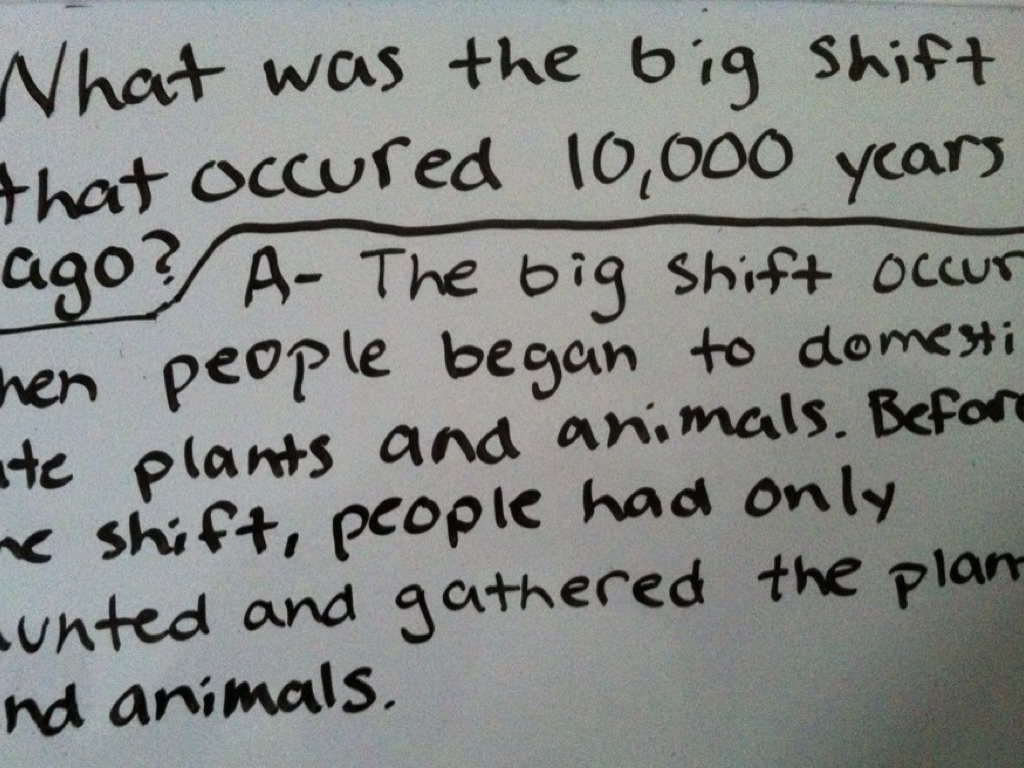 What was the big shift
that occured 10,000 years
ago? A- The big shift occur
hen people began to domesti
ate plants and animals. Before
he shift, people had only
unted and gathered the plan
nd animals.